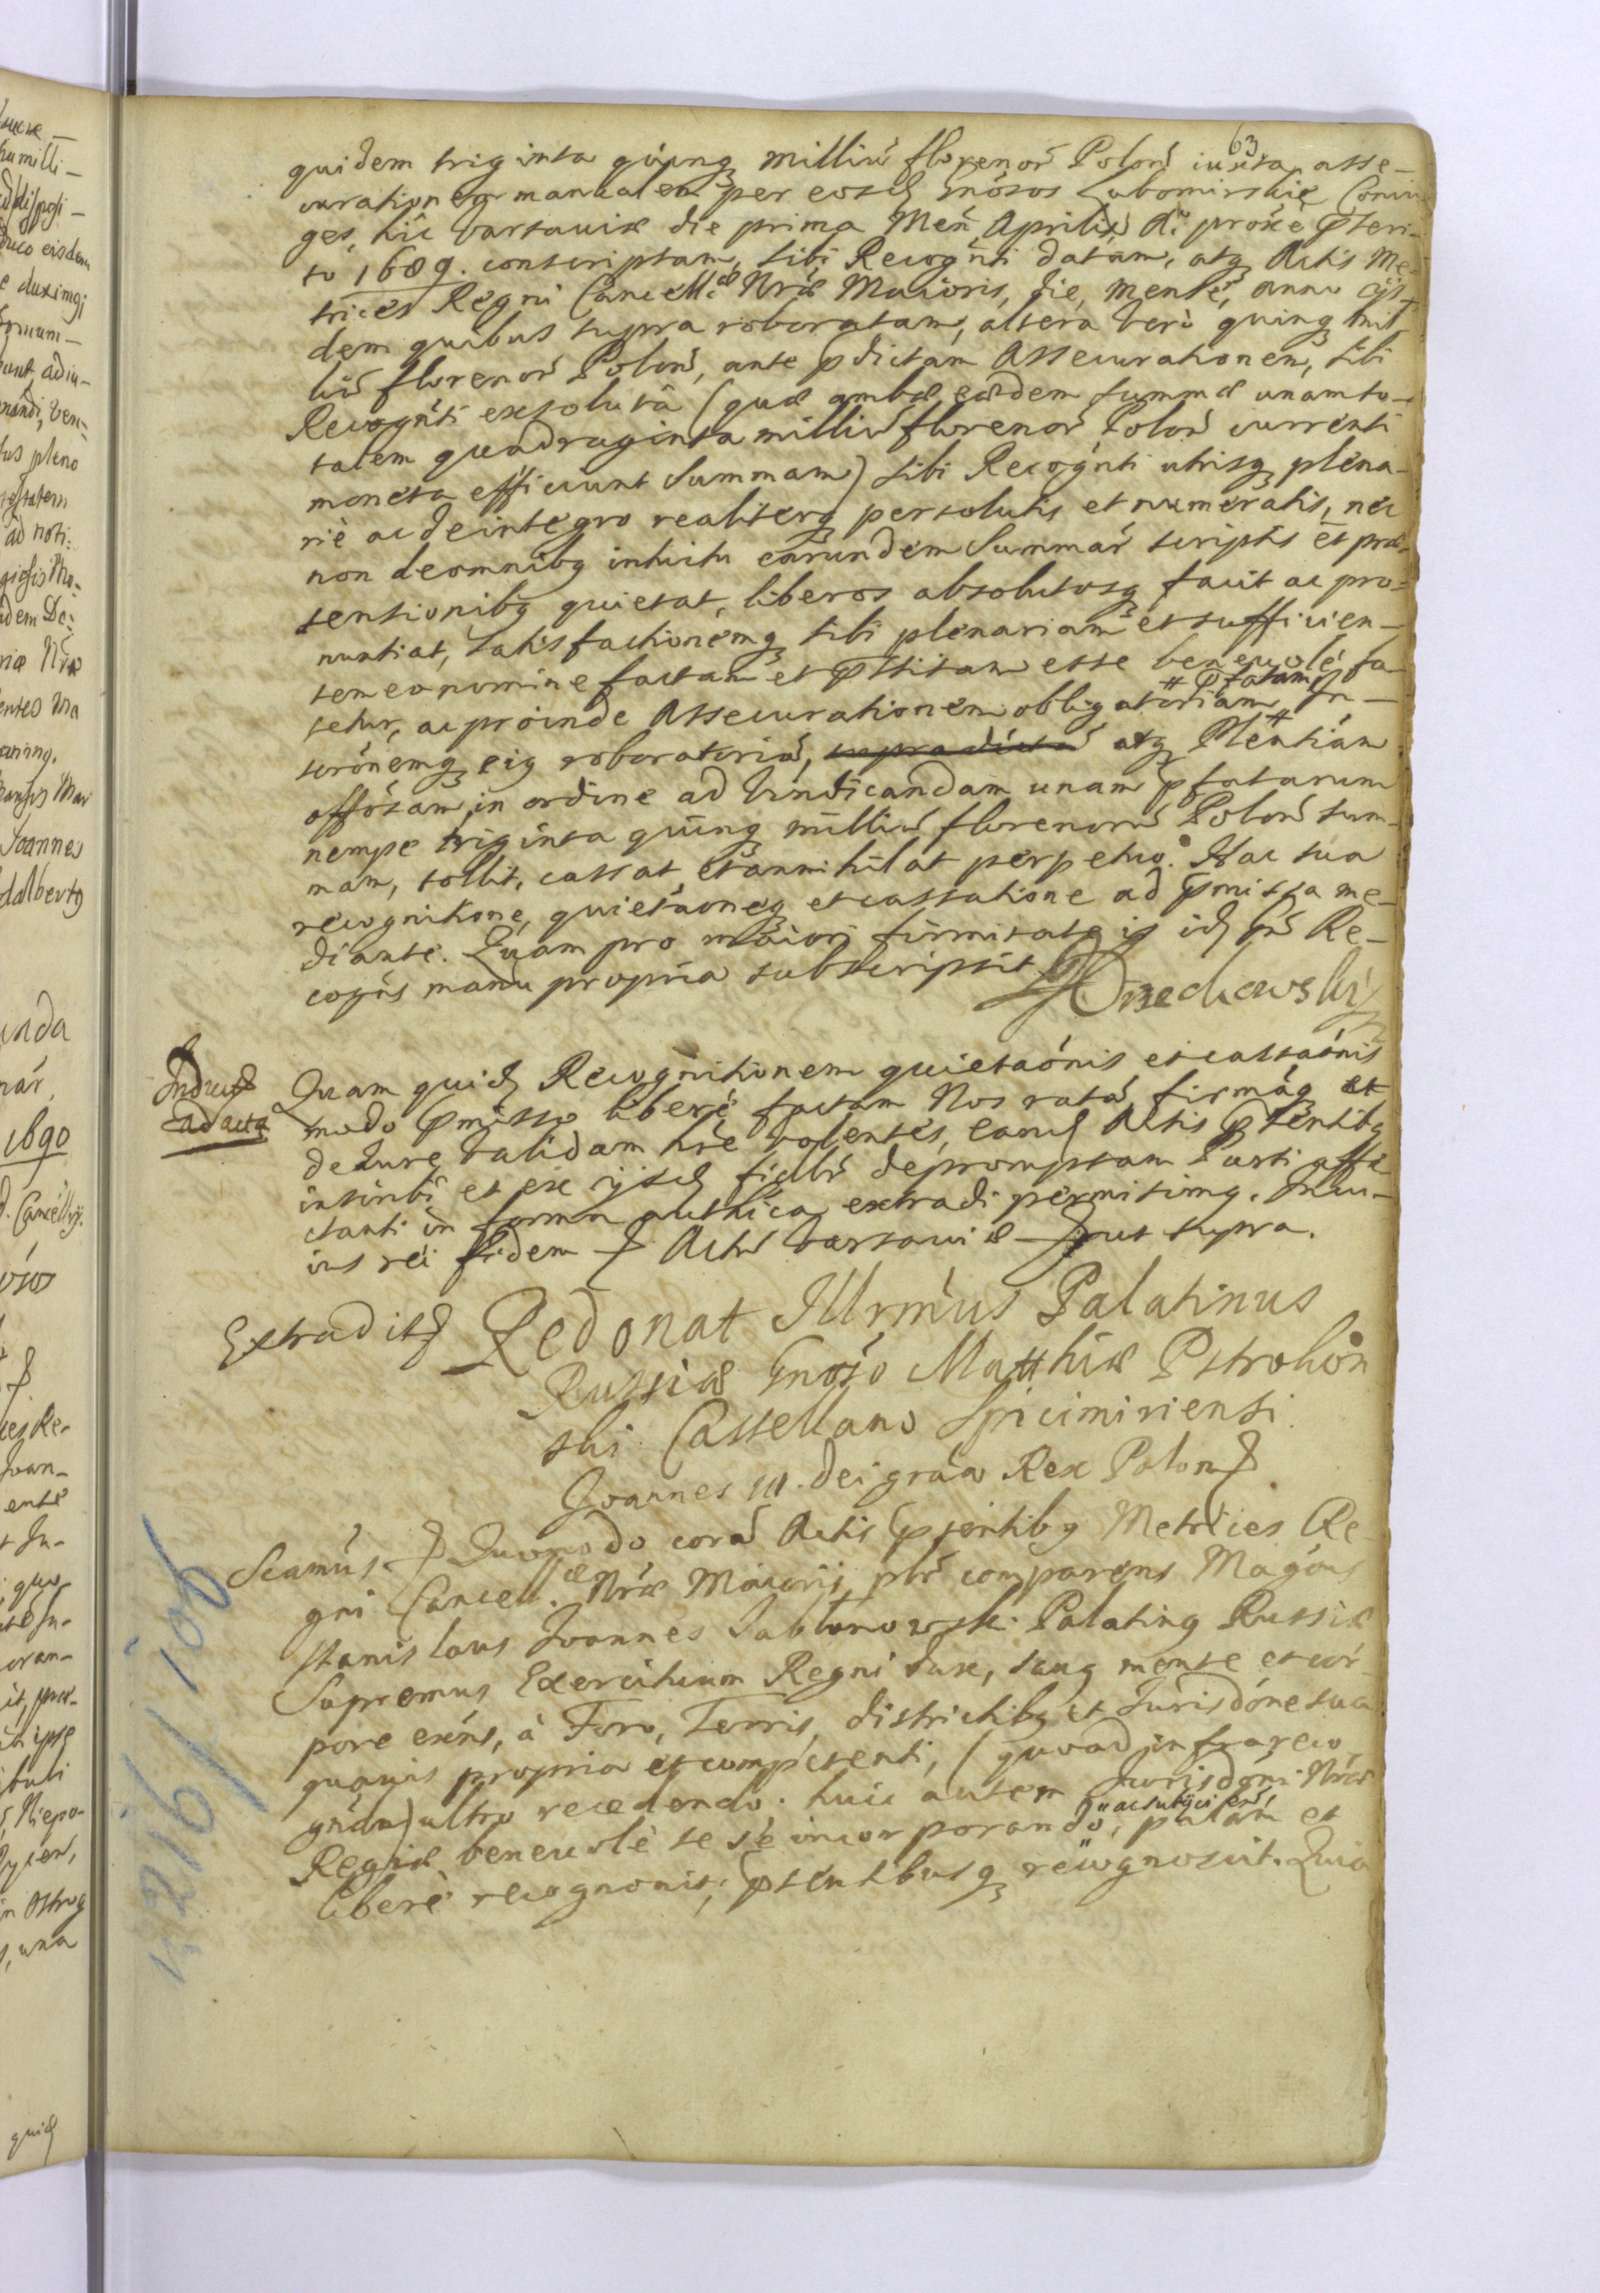 63
quidem triginta quinq, milliũ florenor̃ Polon̄ iuxta asse-
curationem manualem per eosd Gnōsos Lubomirskie Coniu
ges, hic Varsauiæ die prima Men̄ Aprilis Ao proxe p̄teri-
to 1689. conscriptam, sibi Recogn̄ti datam, atq Actis Me-
trices Regni Cancellæ Nr̄æ Maioris, die, mense, anno eis
dem quibus supra roboratam, altera verò quinq mil
liũ florenor̃ Polon̄, ante p̄dictam Assecurationem, sibi
Recogn̄ti exsolutâ (quæ ambæ eædem summæ unam to-
talem quadraginta milliũ florenor̃ Polon̄ currenti
moneta efficiunt Summam) sibi Recogn̄ti utrisq plena-
riè ac de integro realiterq persolutis et numeratis, nec
non de omnibq intuitu earundem Summar̃ scriptis et præ-
tensionibq quietat, liberos absolutosq facit ac pro-
nuntiat, Satisfactionemq sibi plenariam et sufficien-
tem eo nomine factam et p̄stitam esse beneuolè fa
tetur, ac proinde Assecurationem obligatoriam # p̄fatam In-
scrōnemq eiq roboratoriã, supradictã atq Plen̄tiam #
offōsam in ordine ad Vindicandam unam p̄fatarum
nempe triginta quinq milliũ florenorũ Polon̄ Sum-
mam, tollit, cassat et annihilat perpetuo. Hac sua
recognitione, quietāoneq et cassatione ad p̄missa me-
diante. Quam pro maiori firmitate is id Gn̄s Re-
cogn̄s manu propria subscripsit Orzechowski
Induct
ad acta
Quam quid Recognitionem quietaōnis et cassaōnis
modo p̄misso liberè factam Nos ratã, firmãq et
de Iure Validam hr̄e volentes, eand Actis p̄sentibq
inscribi et ex ijsd fidlr̄ depromptam Parti affe
ctanti in forma authica extradi permisimq. In cu-
ius rei fidem Actũ Varsauiæ ut supra.
Extradit Redonat Illrm̄us Palatinus
Russiæ Gnōso Matthiæ Pstrokon
ski Castellano Spicimiriensi
Joannes III. Dei grāa Rex Polon
Scamũs. Quomodo corã Actis p̄sentibq Metrices Re-
gni Cancell.æ Nr̄æ Maioris, plr̄ comparens Magcūs
Stanislaus Joannes Jabłonowski Palatinq Russiæ
Supremus Exercituum Regni Dux, sanq mente et cor-
pore exēns, à Foro, Terris, districtibq et Jurisdōne sua
quauis propria et competenti, (quoad infrareco
gn̄da) ultro recedendo. huic autem Jurisdōni Nr̄æ
Regiæ beneuolè se se incorporando, " ac subijciend palàm et
liberè recognouit, p̄sentibusq recognoscit. Quia
4216/108